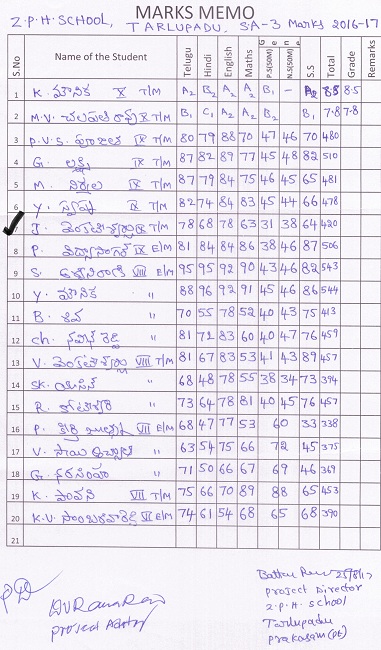 MARKS MEMO
Z.P.H. SCHOOL, TARLUPADU, SA-3 Marks 2016-17
S.No Name of the Student Telugu Hindi English Maths General P.S(50M) N.S(50M) S.S Total Grade Remarks
1 K. మౌనిక X T/M A2 B2 A2 A2 B1 - A2 8.8 8.5
2 M.V. X T/M B1 C1 A2 B2 B2 B1 7.8 7.8
3 P.V.S. IX T/M 80 79 88 70 47 46 70 480
4 G. లక్ష్మి IX T/M 87 82 89 77 45 48 82 510
5 M. నిర్మల IX T/M 87 79 84 75 46 45 65 481
6 Y. స్వప్న IX T/M 82 74 84 83 45 44 66 478
7 J. వెంకటేశ్వర్లు IX T/M 78 68 78 63 31 38 64 420
8 P. విద్యాసాగర్ IX E/M 81 84 84 86 38 46 87 506
9 S. VIII E/M 95 95 92 90 43 46 82 543
10 Y. మౌనిక " 88 96 92 91 45 46 86 544
11 B. శివ " 70 55 78 52 40 43 75 413
12 Ch. నవీన్ రెడ్డి " 81 72 83 60 40 47 76 459
13 V. వెంకటేశ్వర్లు VIII T/M 81 67 83 53 41 43 89 457
14 SK. యాసిన్ " 68 48 78 55 38 34 73 394
15 R. " 73 64 78 81 40 45 76 457
16 P. VII E/M 68 47 77 53 60 33 338
17 V. సాయి " 63 54 75 66 72 45 375
18 G. నరసింహ " 71 50 66 67 69 46 369
19 K. పావని VII T/M 75 66 70 89 88 65 453
20 K.V. VII E/M 74 61 54 68 65 68 390
21
25/8/17
Project Director
Z.P.H. School
Tarlupadu
Prakasam (Dt)